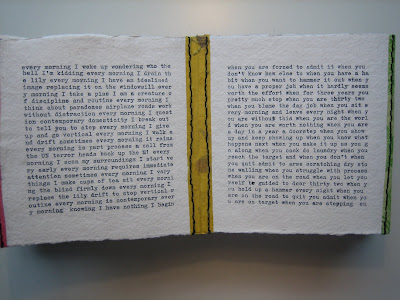 every morning I wake up wondering who the
hell I'm kidding every morning I drain th
e lily every morning I have an idealised
image replacing it on the windowsill ever
y morning I take a piss I am a creature o
f discipline and routine every morning I
think about paradoxes airplane roads work
without distraction every morning I quest
ion contemporary domesticity I break out
to tell you to stop every morning I give
up and go vertical every morning I walk a
nd drift sometimes every morning is
every morning in part process a call from
the UN terror heads back up the M1 every
morning I on my surroundings I start ve
ry early every morning requires immediate
attention sometimes every morning I vary
things I make cups of tea sit every morni
ng the blind firmly down every morning I
replace the lily drift to stop vertical r
outine every morning is contemporary ever
y morning knowing I have nothing I begin
you are forced to admit it when you
don't know how else to when you have a ha
bit when you want to hammer it out when y
ou have a proper job when it hardly seems
worth the effort when for three years you
pretty much stop when you are thirty two
when you leave the day job when you sit e
very morning and leave every night when y
ou are without this when you are the worl
d when you are worth nothing when you are
a day in a year a doorstep when you show
up and keep showing up when you know what
happens next when you make it up as you g
o along when you cook do laundry when you
reset the target and when you don't when
you quit admit to arse scratching dry sto
ne walling when you struggle with process
when you are on the road when you let you
rself be guided to door thirty two when y
ou hold up a hammer every night when you
are on the road to quit you admit when yo
u are on target when you are stopping